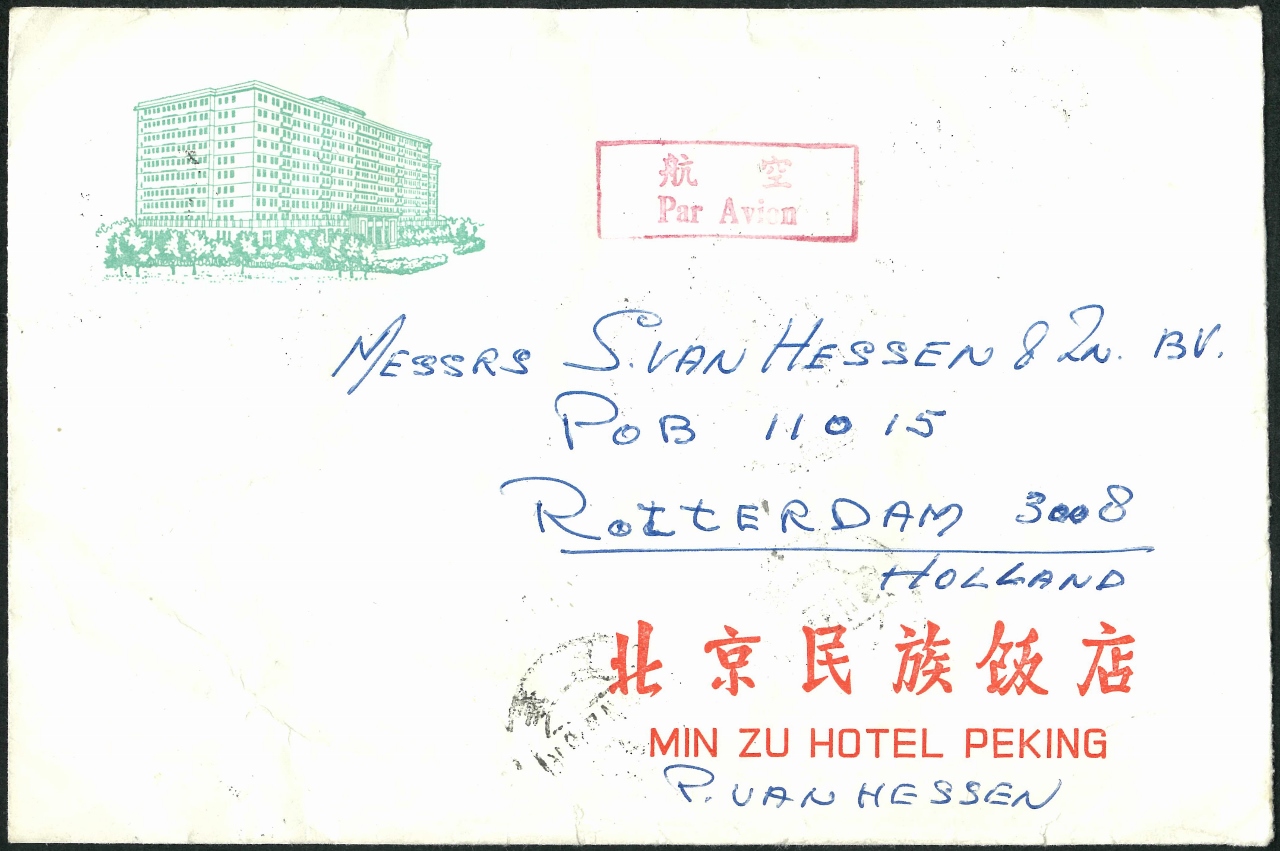 航 空
Par Avion
MESSRS S. VAN HESSEN & ZN. BV.
POB 11015
ROTTERDAM 3008
HOLLAND
北京民族饭店
MIN ZU HOTEL PEKING
P. VAN HESSEN